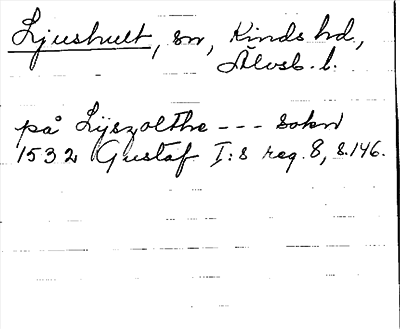 Ljushult, sn, Kinds hd,
Älvsb. l.
på Lijszolthe --- Sokn
1532 Gustaf I:s reg. 8, s.146.